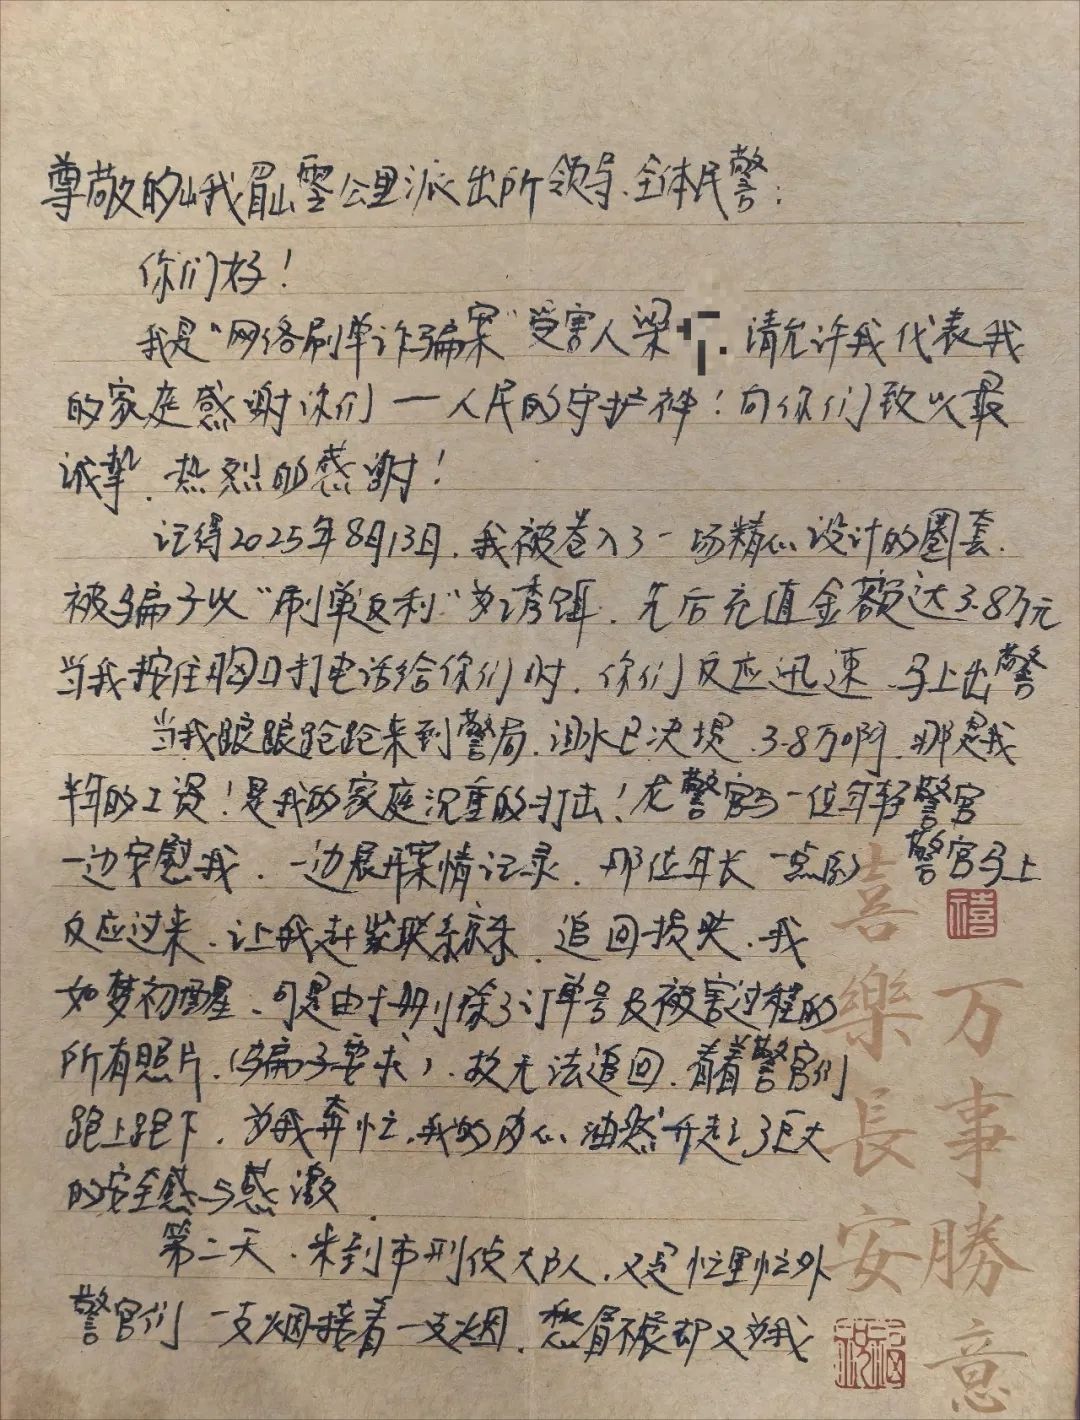 尊敬的峨眉山零公里派出所领导、全体民警:
你们好!
我是“网络刷单诈骗案”受害人梁 请允许我代表我
的家庭感谢你们——人民的守护神!向你们致以最
诚挚、热烈的感谢!
记得2025年8月13日,我被卷入了一场精心设计的圈套,
被骗子以“刷单返利”为诱饵,先后充值金额达3.8万元
当我按住胸口打电话给你们时,你们反应迅速、马上出警
当我踉踉跄跄来到警局,泪水已决堤,3.8万啊,那是我
半年的工资!是我的家庭沉重的打击!龙警官与一位年轻警官
一边安慰我,一边展开案情记录,那位年长一点的警官马上
反应过来,让我赶紧联系京东,追回损失,我
如梦初醒、可是由于删除了订单号及被害过程的
所有照片,(骗子要求),故无法追回,看着警官们
跑上跑下,为我奔忙,我的内心油然升起了巨大
的安全感与感激.
第二天,来到市刑侦大队,又是忙里忙外
警官们一支烟接着一支烟,愁眉不展却又为我
喜樂長安
万事勝意
禧